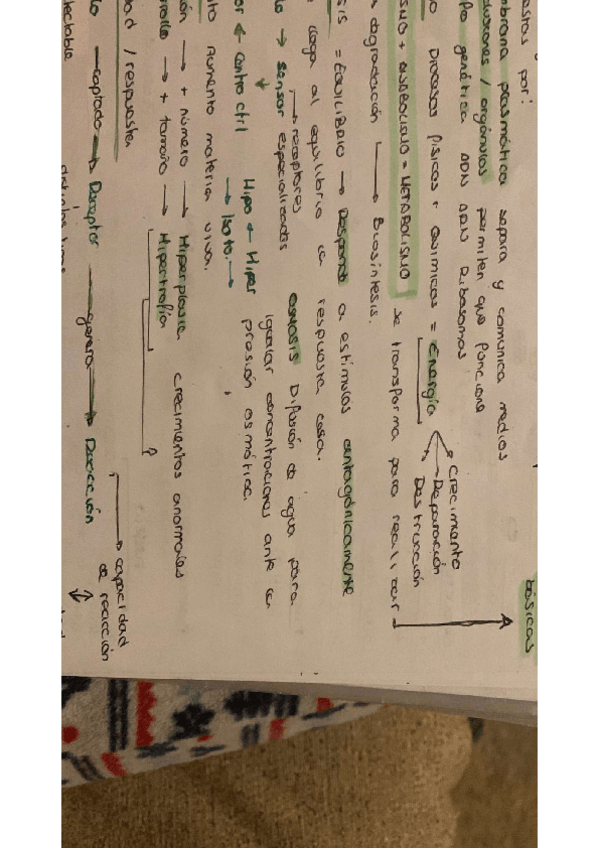 básicas
estas por:
mbrana plasmática separa y comunica medios
clusiones / orgánulos permiten que funcione
po genética ADN ARN Ribosomas
o Procesos físicos + químicos = Energía → crecimiento
→ Reparación
→ Destrucción
ISMO + ANABOLISMO = METABOLISMO se transforma para realizar
degradación → Biosíntesis.
SIS = EQUILIBRIO → Responde a estímulos antagónicamente
llega al equilibrio la respuesta cesa.
→ receptores
lo → sensor especializadas
ósmosis Difusión de agua para
igualar concentraciones ante la
presión osmótica.
or ← Control
Hipo ← Hiper
→ Isoto. →
to Aumento materia viva.
ón → + número → Hiperplasia crecimientos anormales
rrollo → + tamaño → Hipertrofia
ad / respuesta
lo → captado → Receptor → genera → Reacción
→ capacidad
de reacción